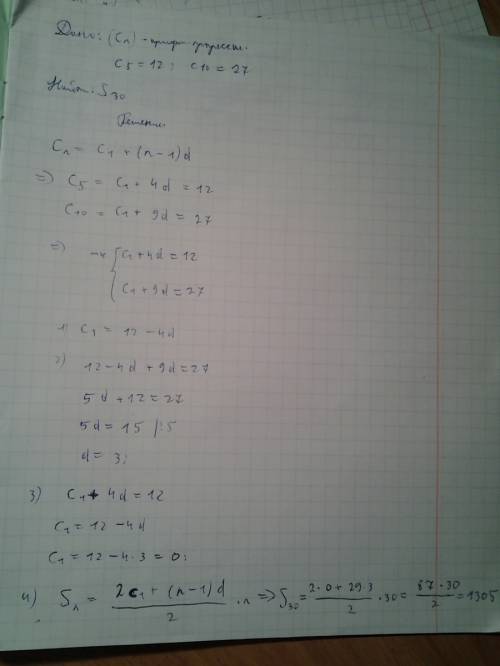 Дано: (Cn) - арифм. прогрессия.
C5 = 12; C10 = 27
Найти: S30
Решение:
Cn = C1 + (n-1)d
=> C5 = C1 + 4d = 12
C10 = C1 + 9d = 27
=> { C1 + 4d = 12
C1 + 9d = 27
1) C1 = 12 - 4d
2) 12 - 4d + 9d = 27
5d + 12 = 27
5d = 15 |:5
d = 3;
3) C1 + 4d = 12
C1 = 12 - 4d
C1 = 12 - 4·3 = 0;
4) Sn = (2C1 + (n-1)d)/2 · n => S30 = (2·0 + 29·3)/2 · 30 = (87·30)/2 = 1305